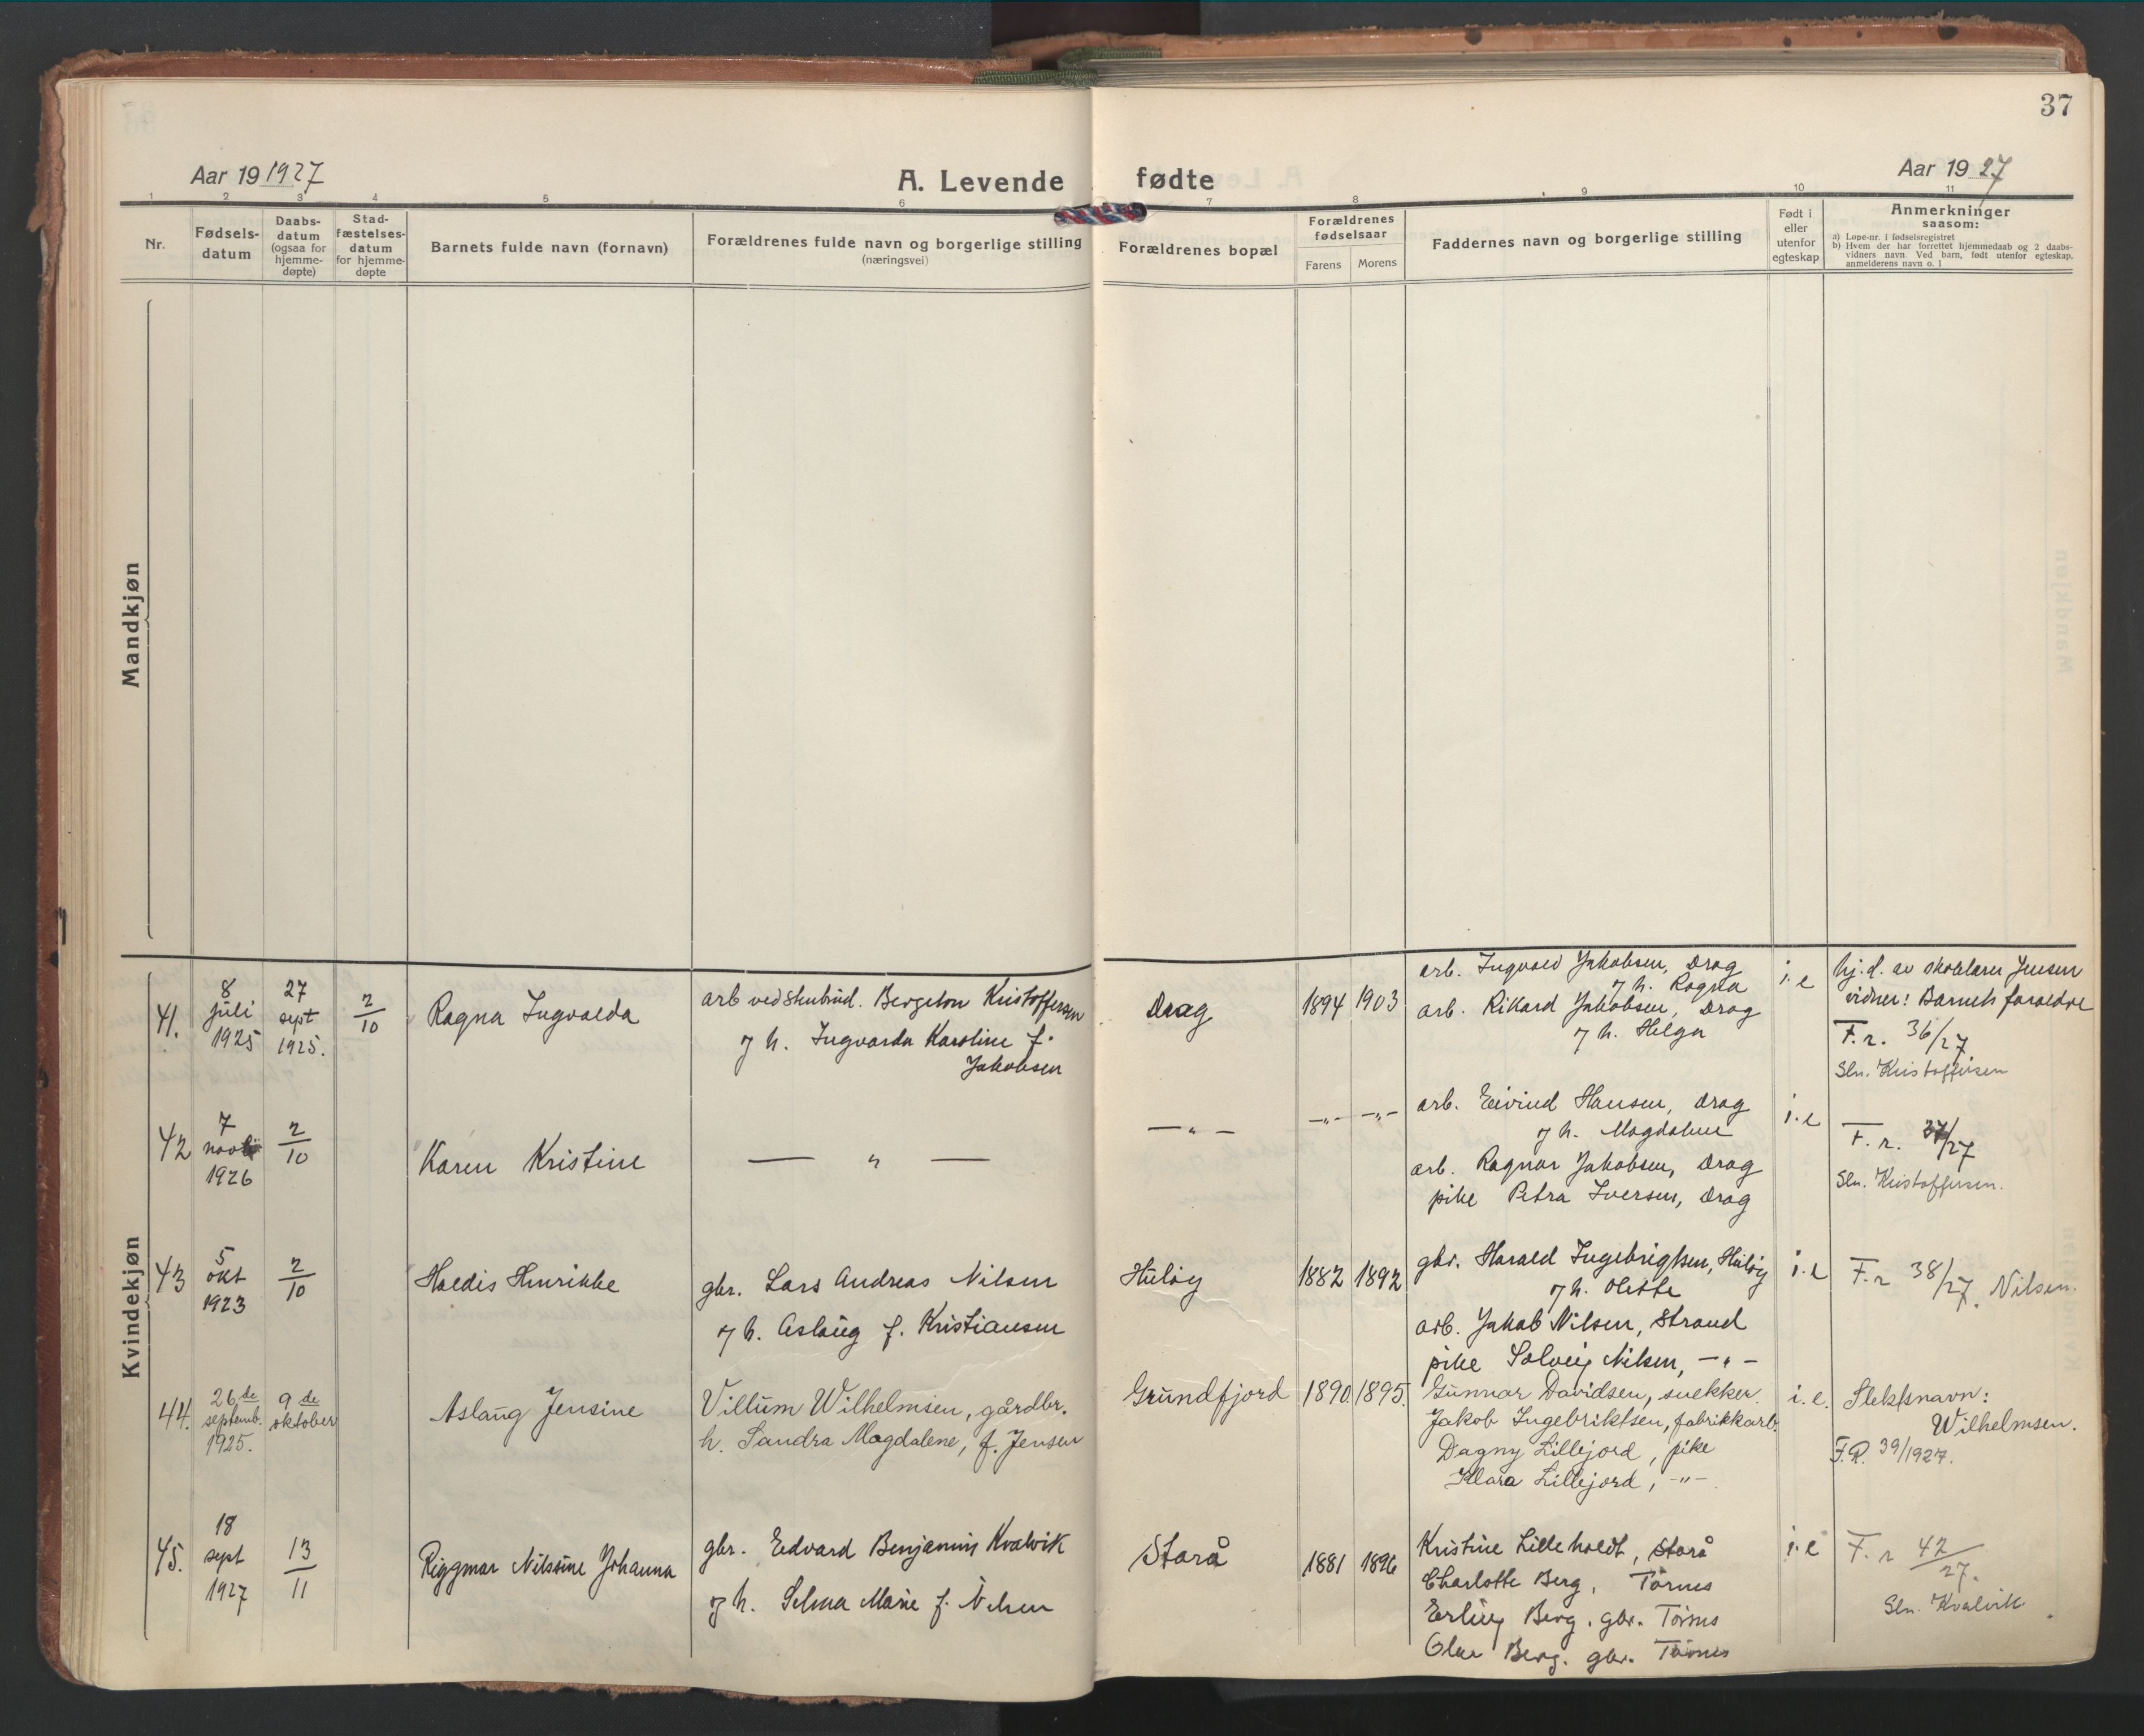 37
Aar 19 1927
A. Levende fødte
Aar 19 27
1 2 3 4 5 6 7 8 9 10 11
Nr.
Fødsels-
datum
Daabs-
datum
(ogsaa for
hjemme-
døpte)
Stad-
fæstelses-
datum
for hjemme-
døpte
Barnets fulde navn (fornavn)
Forældrenes fulde navn og borgerlige stilling
(næringsvei)
Forældrenes bopæl
Forældrenes
fødselsaar
Farens Morens
Faddernes navn og borgerlige stilling
Født i
eller
utenfor
egteskap
Anmerkninger
saasom:
a) Løpe-nr. i fødselsregistret
b) Hvem der har forrettet hjemmedaab og 2 daabs-
vidners navn. Ved barn, født utenfor egteskap,
anmelderens navn o. l
Mandkjøn
Kvindekjøn
41.
8
juli
1925
27
sept
1925.
2/10
Ragna Ingvalda
arb ved stenbrud. Bergeton Kristoffersen
og h. Ingvarda Karoline f.
Jakobsen
Drag
1894 1903
arb. Ingvald Jakobsen, Drag
og h. Ragna
arb. Rikard Jakobsen, Drag
og h. Helga
i. e
hj. d. av skolelærer Jensen
vidner: Barnets foreldre
F. r. 36/27
Sln. Kristoffersen
42
7
1926
2/10
Karen Kristine
— " —
— " —
— " — — " —
arb. Eivind Hansen, Drag
og h. Magdalene
arb. Ragnar Jakobsen, Drag
pike Petra Iversen, Drag
i. e
F. r. 37/27
Sln. Kristoffersen.
43
5
okt
1923
2/10
Haldis Henrikke
gbr. Lars Andreas Nilsen
og h. Aslaug f. Kristiansen
Huløy
1882 1892
gbr. Harald Ingebrigtsen, Huløy
og h. Olette
arb. Jakob Nilsen, Strand
pike Solveig Nilsen, — " —
i. e
F. r 38/27. Nilsen.
44.
26de
septemb.
1925.
9de
oktober
Aslaug Jensine
Villum Wilhelmsen, gårdbr.
h. Sandra Magdalene, f. Jensen
Grundfjord
1890. 1895.
Gunnar Davidsen, snekker
Jakob Ingebriktsen, fabrikkarb.
Dagny Lillejord, pike
Klara Lillejord, — " —
i. e.
Slektsnavn:
Wilhelmsen.
F.R. 39/1927.
45.
18
sept
1927
13/11
Riggmor Nilssine Johanna
gbr. Edvard Benjamin Kvalvik
og h. Selma Marie f. Nilsen
Storå
1881 1896
Kristine Lilleholdt, Storå
Charlotte Berg, Tørnes
Erling Berg. gbr. Tørnes
Olav Berg. gbr. Tørnes
i. e
F. r 42/27.
Sln. Kvalvik